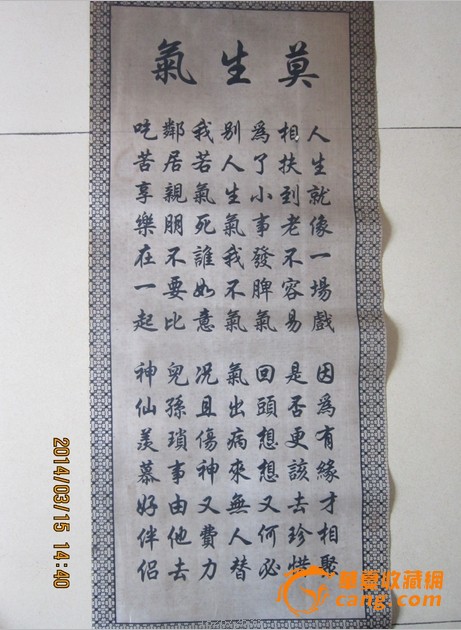 莫生氣
人生就像一場戲 因爲有緣才相聚
相扶到老不容易 是否更該去珍惜
爲了小事發脾氣 回頭想想又何必
别人生氣我不氣 氣出病來無人替
我若氣死誰如意 况且傷神又費力
鄰居親朋不要比 兒孫瑣事由他去
吃苦享樂在一起 神仙羡慕好伴侣
2014/03/15 14:40
華夏收藏網
cang.com